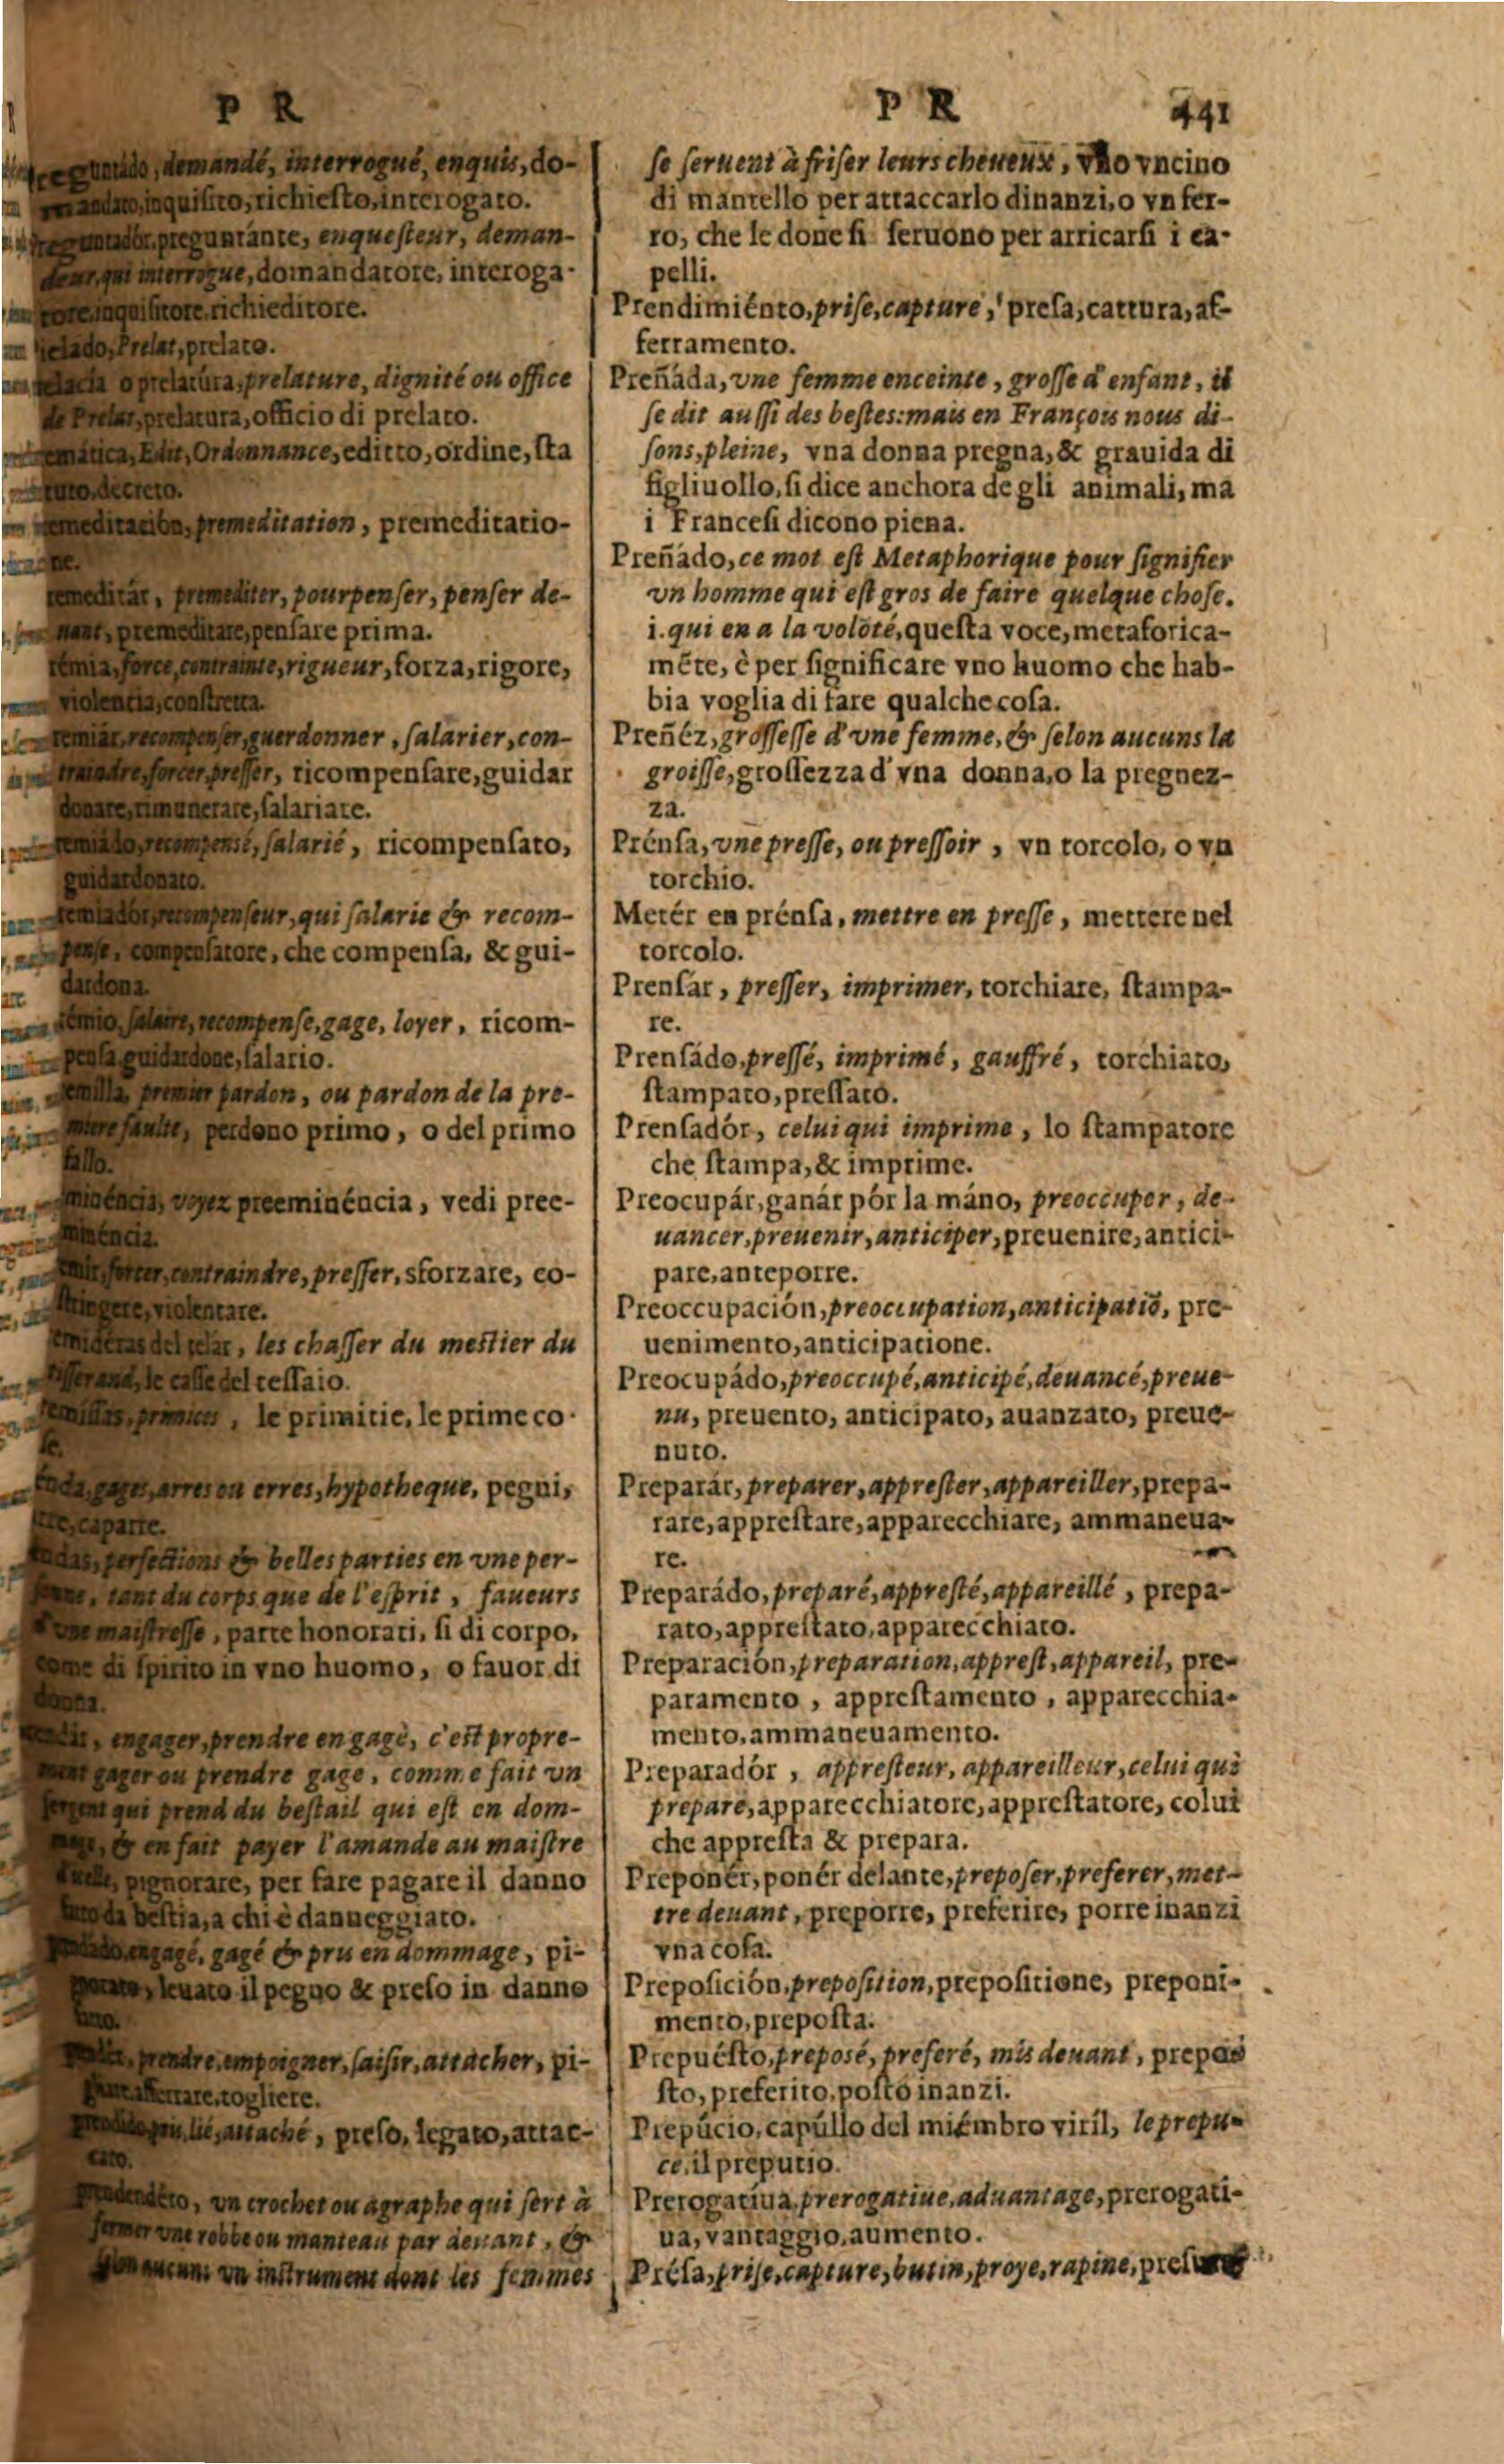 P R
demandé, interrogué, enquis, do-
inquisito, richiesto, interogato.
preguntánte, enquesteur, deman-
deur, qui interrogue, domandatore, interoga-
tore, inquisitore, richieditore.
Prelat, prelato.
o prelatúra, prelature, dignité ou office
de Prelat, prelatura, officio di prelato.
Edit, Ordonnance, editto, ordine, sta
tuto, decreto.
premeditation, premeditatio-
ne.
premediter, pourpenser, penser de-
uant, premeditare, pensare prima.
force, contrainte, rigueur, forza, rigore,
violentia, constretta.
recompenser, guerdonner, salarier, con-
traindre, forcer, presser, ricompensare, guidar
donare, rimunerare, salariare.
recompensé, salarié, ricompensato,
guidardonato.
recompenseur, qui salarie & recom-
pense, compensatore, che compensa, & gui-
dardona.
salaire, recompense, gage, loyer, ricom-
pensa, guidardone, salario.
premier pardon, ou pardon de la pre-
miere faulte, perdono primo, o del primo
fallo.
voyez preeminéncia, vedi pree-
minéncia.
forcer, contraindre, presser, sforzare, co-
stringere, violentare.
del telar, les chasser du mestier du
tisserand, le casse del tessaio.
primices, le primitie, le prime co-
se.
gages, arres ou erres, hypotheque, pegni,
caparre.
perfections & belles parties en vne per-
sonne, tant du corps que de l'esprit, faueurs
d'vne maistresse, parte honorati, si di corpo,
come di spirito in vno huomo, o fauor di
donna.
engager, prendre en gage, c'est propre-
ment gager ou prendre gage, comme fait vn
sergent qui prend du bestail qui est en dom-
mage, & en fait payer l'amande au maistre
pignorare, per fare pagare il danno
fatto da bestia, a chi è danneggiato.
engagé, gagé & pris en dommage, pi-
gnorato, leuato il pegno & preso in danno
prendre, empoigner, saisir, attacher, pi-
gliare, afferrare, togliere.
pris, lié, attaché, preso, legato, attac-
cato.
vn crochet ou agraphe qui sert à
fermer vne robbe ou manteau par deuant, &
selon aucuns vn instrument dont les femmes
P R 441
se seruent à friser leurs cheueux, vno vncino
di mantello per attaccarlo dinanzi, o vn fer-
ro, che le done si seruono per arricarsi i ca-
pelli.
Prendimiénto, prise, capture, presa, cattura, af-
ferramento.
Preñáda, vne femme enceinte, grosse d'enfant, il
se dit aussi des bestes: mais en François nous di-
sons, pleine, vna donna pregna, & grauida di
figliuollo, si dice anchora de gli animali, ma
i Francesi dicono piena.
Preñádo, ce mot est Metaphorique pour signifier
vn homme qui est gros de faire quelque chose.
i. qui en a la volõté, questa voce, metaforica-
mẽte, è per significare vno huomo che hab-
bia voglia di fare qualche cosa.
Preñéz, grossesse d'vne femme, & selon aucuns la
groisse, grossezza d'vna donna, o la pregnez-
za.
Prénsa, vne presse, ou pressoir, vn torcolo, o vn
torchio.
Metér en prénsa, mettre en presse, mettere nel
torcolo.
Prensár, presser, imprimer, torchiare, stampa-
re.
Prensádo, pressé, imprimé, gauffré, torchiato,
stampato, pressato.
Prensadór, celui qui imprime, lo stampatore
che stampa, & imprime.
Preocupár, ganár pór la máno, preoccuper, de-
uancer, preuenir, anticiper, preuenire, antici-
pare, anteporre.
Preoccupación, preoccupation, anticipatiõ, pre-
uenimento, anticipatione.
Preocupádo, preoccupé, anticipé, deuancé, preue-
nu, preuento, anticipato, auanzato, preue-
nuto.
Preparár, preparer, apprester, appareiller, prepa-
rare, apprestare, apparecchiare, ammaneua-
re.
Preparádo, preparé, appresté, appareillé, prepa-
rato, apprestato, apparecchiato.
Preparación, preparation, apprest, appareil, pre-
paramento, apprestamento, apparecchia-
mento, ammaneuamento.
Preparadór, appresteur, appareilleur, celui qui
prepare, apparecchiatore, apprestatore, colui
che appresta & prepara.
Preponér, ponér delante, preposer, preferer, met-
tre deuant, preporre, preferire, porre inanzi
vna cosa.
Preposición, preposition, prepositione, preponi-
mento, preposta.
Prepuésto, preposé, preferé, mis deuant, prepo
sto, preferito, posto inanzi.
Prepúcio, capúllo del miémbro viríl, le prepu-
ce, il preputio.
Prerogatíua, prerogatiue, aduantage, prerogati-
ua, vantaggio, aumento.
Présa, prise, capture, butin, proye, rapine,